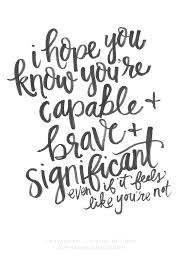 i hope you
know you're
capable +
brave +
significant
even if it feels
like you're not